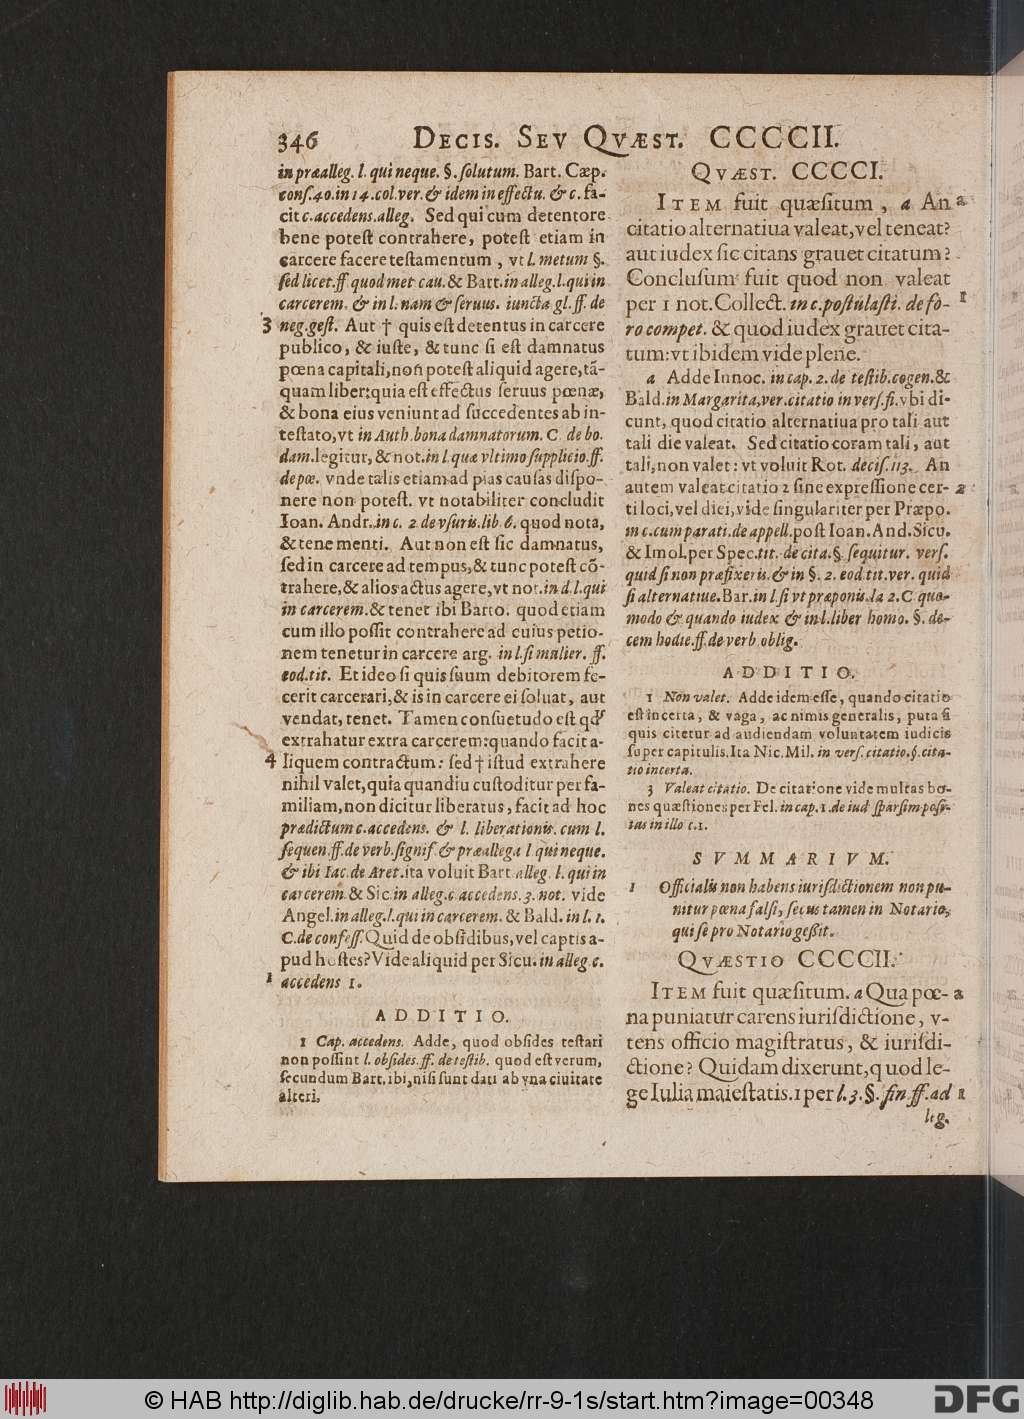 346 DECIS. SEV QVÆST. CCCCII.
in præalleg. l. qui neque. §. ſolutum. Bart. Cæp.
conſ. 40. in 14. col. ver. & idem in effectu. &c. fa-
cit c. accedens. alleg. Sed qui cum detentore
bene poteſt contrahere, poteſt etiam in
carcere facere teſtamentum, vt l. metum §.
ſed licet. ff. quod met cau. & Bart. in alleg. l. qui in
carcerem. & in l. nam & ſeruus. iuncta gl. ff. de
3 neg. geſt. Aut † quis eſt detentus in carcere
publico, & iuſte, & tunc ſi eſt damnatus
pœna capitali, non poteſt aliquid agere, tã-
quam liber: quia eſt effectus ſeruus pœnæ,
& bona eius veniunt ad ſuccedentes ab in-
teſtato, vt in Auth. bona damnatorum. C. de bo.
dam. legitur, & not. in l. quæ vltimo ſupplicio. ff.
de pœ. vnde talis etiam ad pias cauſas diſpo-
nere non poteſt. vt notabiliter concludit
Ioan. Andr. in c. 2. de vſuris. lib. 6. quod nota,
& tene menti. Aut non eſt ſic damnatus,
ſed in carcere ad tempus, & tunc poteſt cõ-
trahere, & alios actus agere, vt not. in d. l. qui
in carcerem. & tenet ibi Barto. quod etiam
cum illo poſſit contrahere ad cuius petio-
nem tenetur in carcere arg. in l. ſi mulier. ff.
eod. tit. Et ideo ſi quis ſuum debitorem fe-
cerit carcerari, & is in carcere ei ſoluat, aut
vendat, tenet. Tamen conſuetudo eſt qđ
extrahatur extra carcerem: quando facit a-
4 liquem contractum: ſed † iſtud extrahere
nihil valet, quia quandiu cuſtoditur per fa-
miliam, non dicitur liberatus, facit ad hoc
prædictum c. accedens. & l. liberationis. cum l.
ſequen. ff. de verb. ſignif. & præallega l. qui neque.
& ibi Iac. de Aret. ita voluit Bart. alleg. l. qui in
carcerem. & Sic. in alleg. c. accedens. 3. not. vide
Angel. in alleg. l. qui in carcerem. & Bald. in l. 1.
C. de confeſſ. Quid de obſidibus, vel captis a-
pud hoſtes? Vide aliquid per Sicu. in alleg. c.
1 accedens 1.
ADDITIO.
1 Cap. accedens. Adde, quod obſides teſtari
non poſſint l. obſides. ff. de teſtib. quod eſt verum,
ſecundum Bart. ibi, niſi ſunt dati ab vna ciuitate
alteri.
QVÆST. CCCCI.
ITEM fuit quæſitum, a An a
citatio alternatiua valeat, vel teneat?
aut iudex ſic citans grauet citatum?
Concluſum fuit quod non valeat
per 1 not. Collect. in c. poſtulaſti. de fo- 1
ro compet. & quod iudex grauet cita-
tum: vt ibidem vide plene.
a Adde Innoc. in cap. 2. de teſtib. cogen. &
Bald. in Margarita, ver. citatio in verſ. fi. vbi di-
cunt, quod citatio alternatiua pro tali aut
tali die valeat. Sed citatio coram tali, aut
tali, non valet: vt voluit Rot. deciſ. 113. An
autem valeat citatio 2 ſine expreſſione cer- 2
ti loci, vel diei, vide ſingulariter per Præpo.
in c. cum parati. de appell. poſt Ioan. And. Sicu.
& Imol. per Spec. tit. de cita. §. ſequitur. verſ.
quid ſi non præfixeris. & in §. 2. eod. tit. ver. quid
ſi alternatiue. Bar. in l. ſi vt præponis. la 2. C. quo-
modo & quando iudex & in l. liber homo. §. de-
cem hodie. ff. de verb. oblig.
ADDITIO.
1 Non valet. Adde idem eſſe, quando citatio
eſt incerta, & vaga, ac nimis generalis, puta ſi
quis citetur ad audiendam voluntatem iudicis
ſuper capitulis. Ita Nic. Mil. in verſ. citatio. §. cita-
tio incerta.
3 Valeat citatio. De citatione vide multas bo-
nes quæſtiones per Fel. in cap. 1. de iud. ſparſim poſi-
tas in illo c. 1.
SVMMARIVM.
1 Officialis non habens iuriſdictionem non pu-
nitur pœna falſi, ſecus tamen in Notario,
qui ſe pro Notario geßit.
QVÆSTIO CCCCII.
ITEM fuit quæſitum. a Qua pœ- a
na puniatur carens iuriſdictione, v-
tens officio magiſtratus, & iuriſdi-
ctione? Quidam dixerunt, quod le-
ge Iulia maieſtatis. 1 per l. 3. §. fin. ff. ad 1
leg.
© HAB http://diglib.hab.de/drucke/rr-9-1s/start.htm?image=00348
DFG